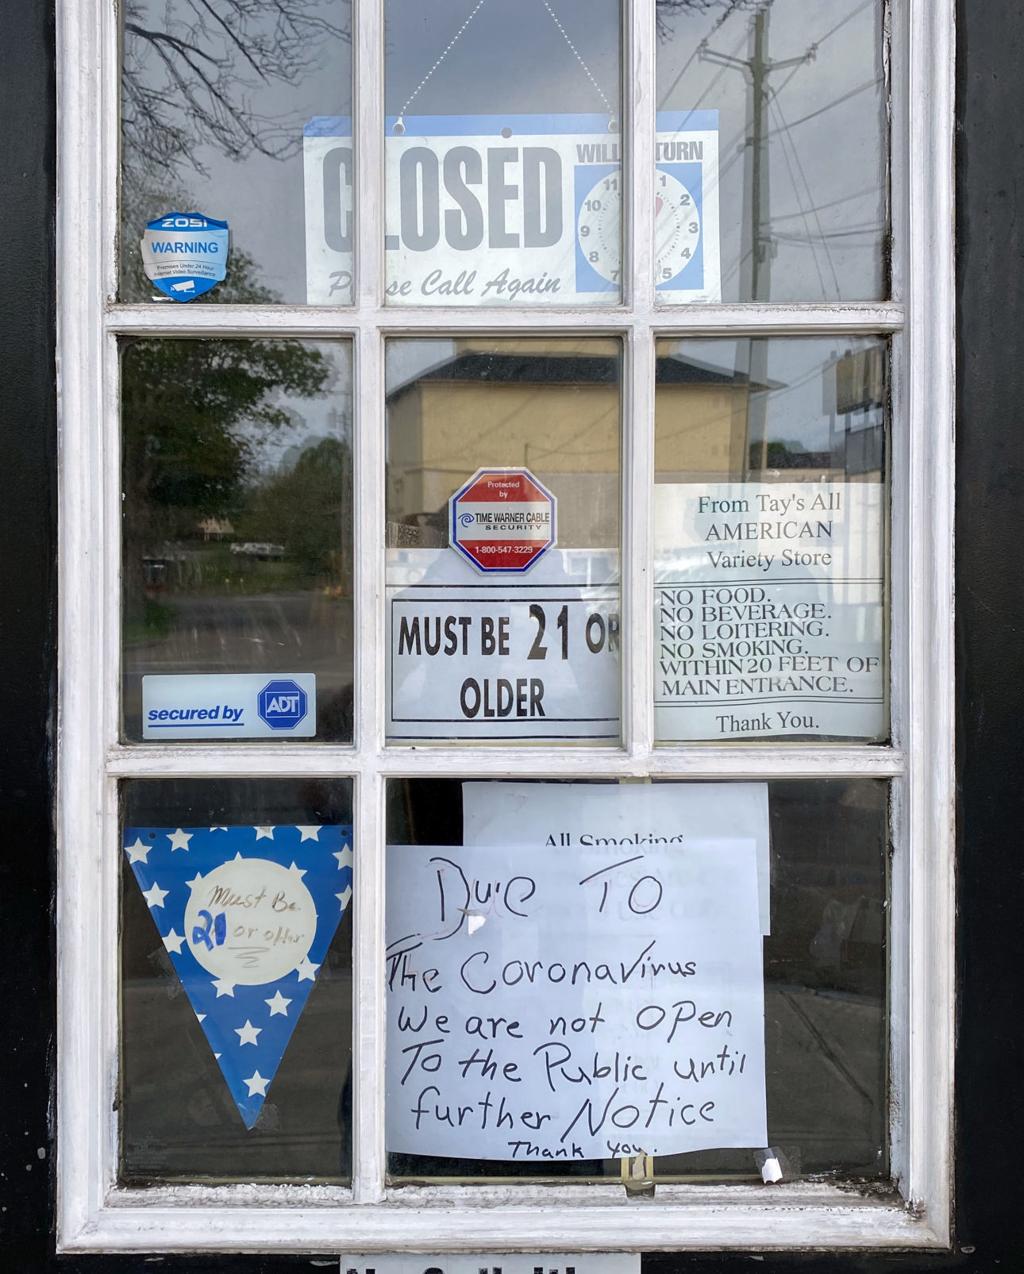 CLOSED
WILL TURN
11 1
10 2
9 3
8
7 5
Please Call Again
ZOSI
WARNING
Premises Under 24 Hour
Internet Video Surveillance
Protected
by
TIME WARNER CABLE
SECURITY
1-800-547-3229
MUST BE 21 OR
OLDER
From Tay's All
AMERICAN
Variety Store
NO FOOD.
NO BEVERAGE.
NO LOITERING.
NO SMOKING.
WITHIN 20 FEET OF
MAIN ENTRANCE.
Thank You.
secured by ADT
Must Be
21 or older
All Smoking
Due To
The Coronavirus
We are not open
To the Public until
further Notice
Thank you.